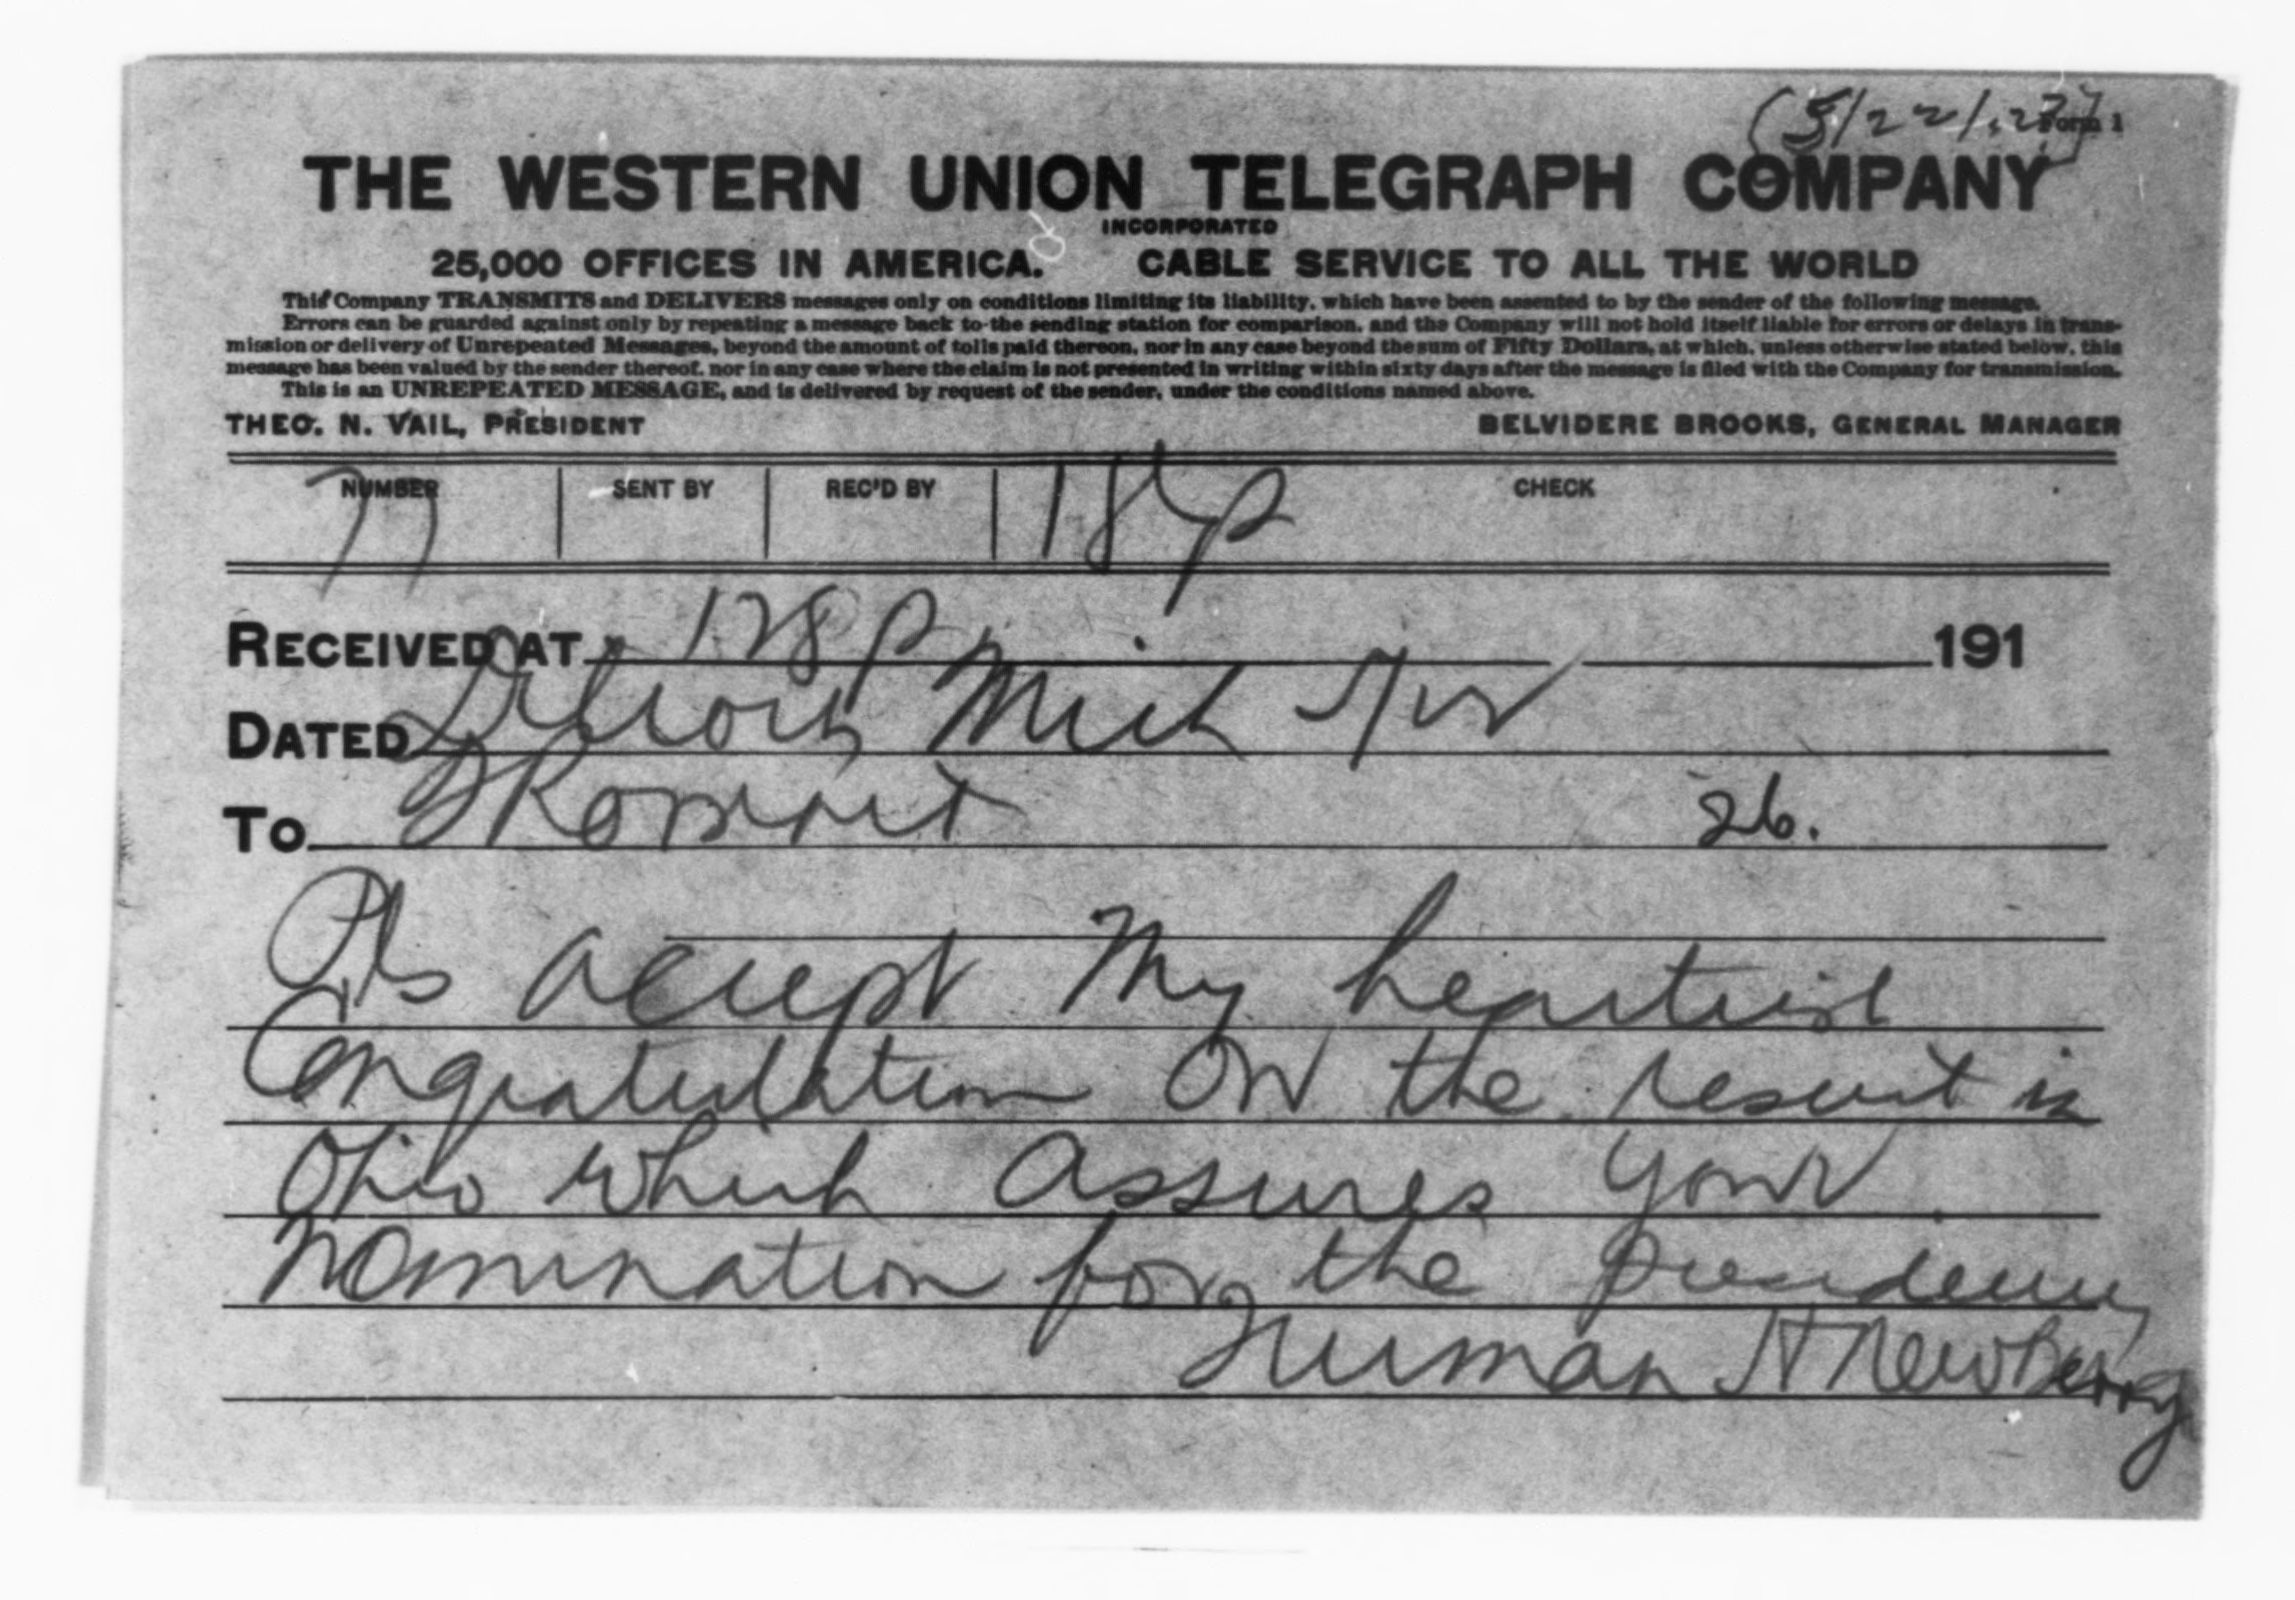 (5/22/.2?)
Form 1
THE WESTERN UNION TELEGRAPH COMPANY
INCORPORATED
25,000 OFFICES IN AMERICA. CABLE SERVICE TO ALL THE WORLD
This Company TRANSMITS and DELIVERS messages only on conditions limiting its liability, which have been assented to by the sender of the following message.
Errors can be guarded against only by repeating a message back to the sending station for comparison, and the Company will not hold itself liable for errors or delays in trans-
mission or delivery of Unrepeated Messages, beyond the amount of tolls paid thereon, nor in any case beyond the sum of Fifty Dollars, at which, unless otherwise stated below, this
message has been valued by the sender thereof, nor in any case where the claim is not presented in writing within sixty days after the message is filed with the Company for transmission.
This is an UNREPEATED MESSAGE, and is delivered by request of the sender, under the conditions named above.
THEO. N. VAIL, PRESIDENT BELVIDERE BROOKS, GENERAL MANAGER
NUMBER SENT BY REC'D BY CHECK
77
RECEIVED AT 128 p 191
DATED Detroit Mich
TO 26.
Pls accept My heartiest
Congratulation ON the result in
Ohio which assures your
Nomination for the presidency
Truman H NewBerry